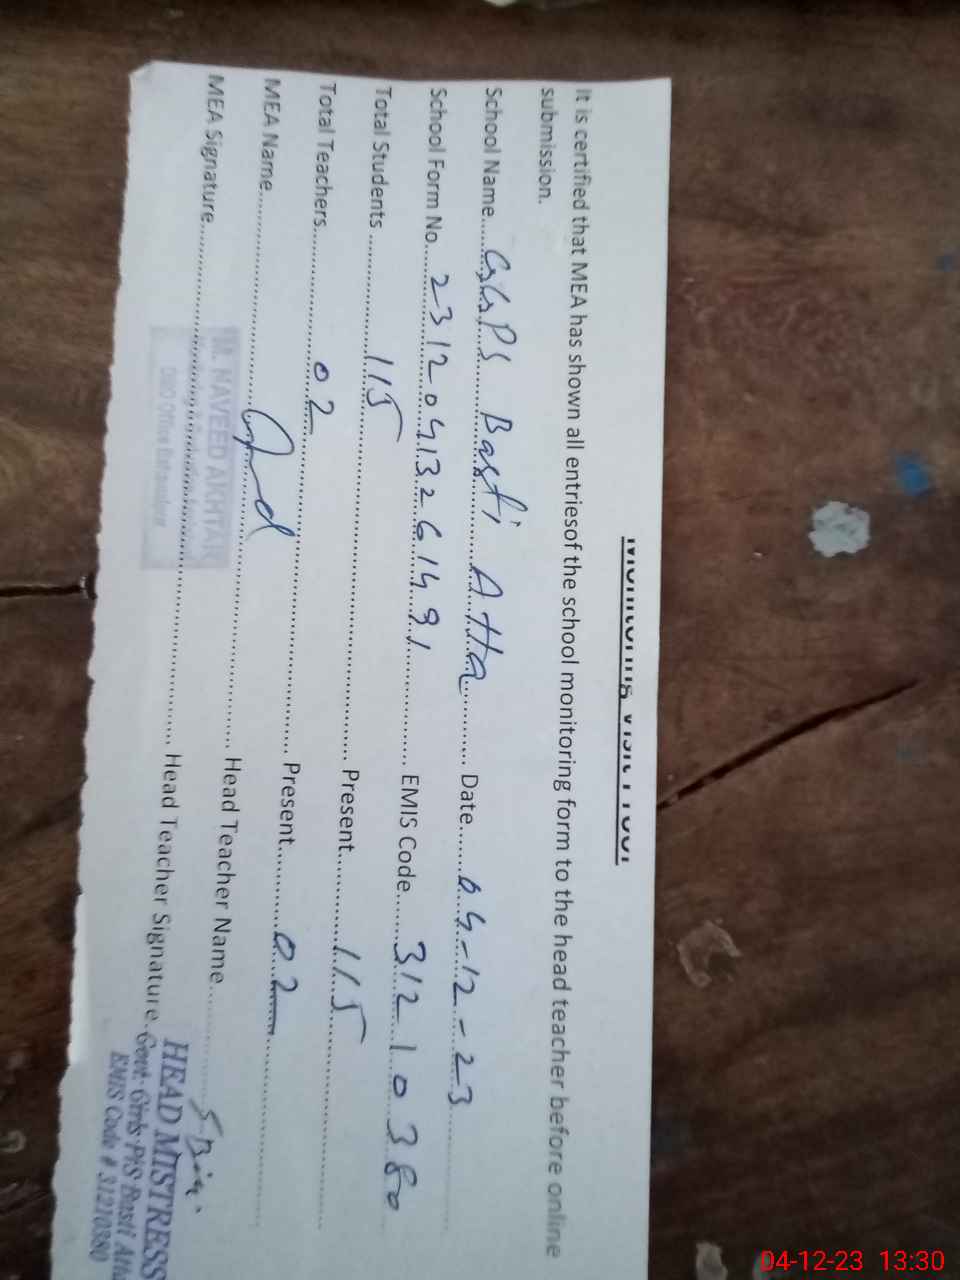 Monitoring Visit Proof
It is certified that MEA has shown all entriesof the school monitoring form to the head teacher before online
submission.
School Name.....GGPS Basti Atta............ Date.......04-12-23
School Form No...23120413261491............ EMIS Code.......31210380
Total Students ..................115............ Present............115
Total Teachers..................02............ Present..........02
MEA Name............ Head Teacher Name............
MEA Signature............ Head Teacher Signature.
M. NAVEED AKHTAR
HEAD MISTRESS
Govt: Girls P/S Basti Atta
EMIS Code # 31210380
04-12-23 13:30